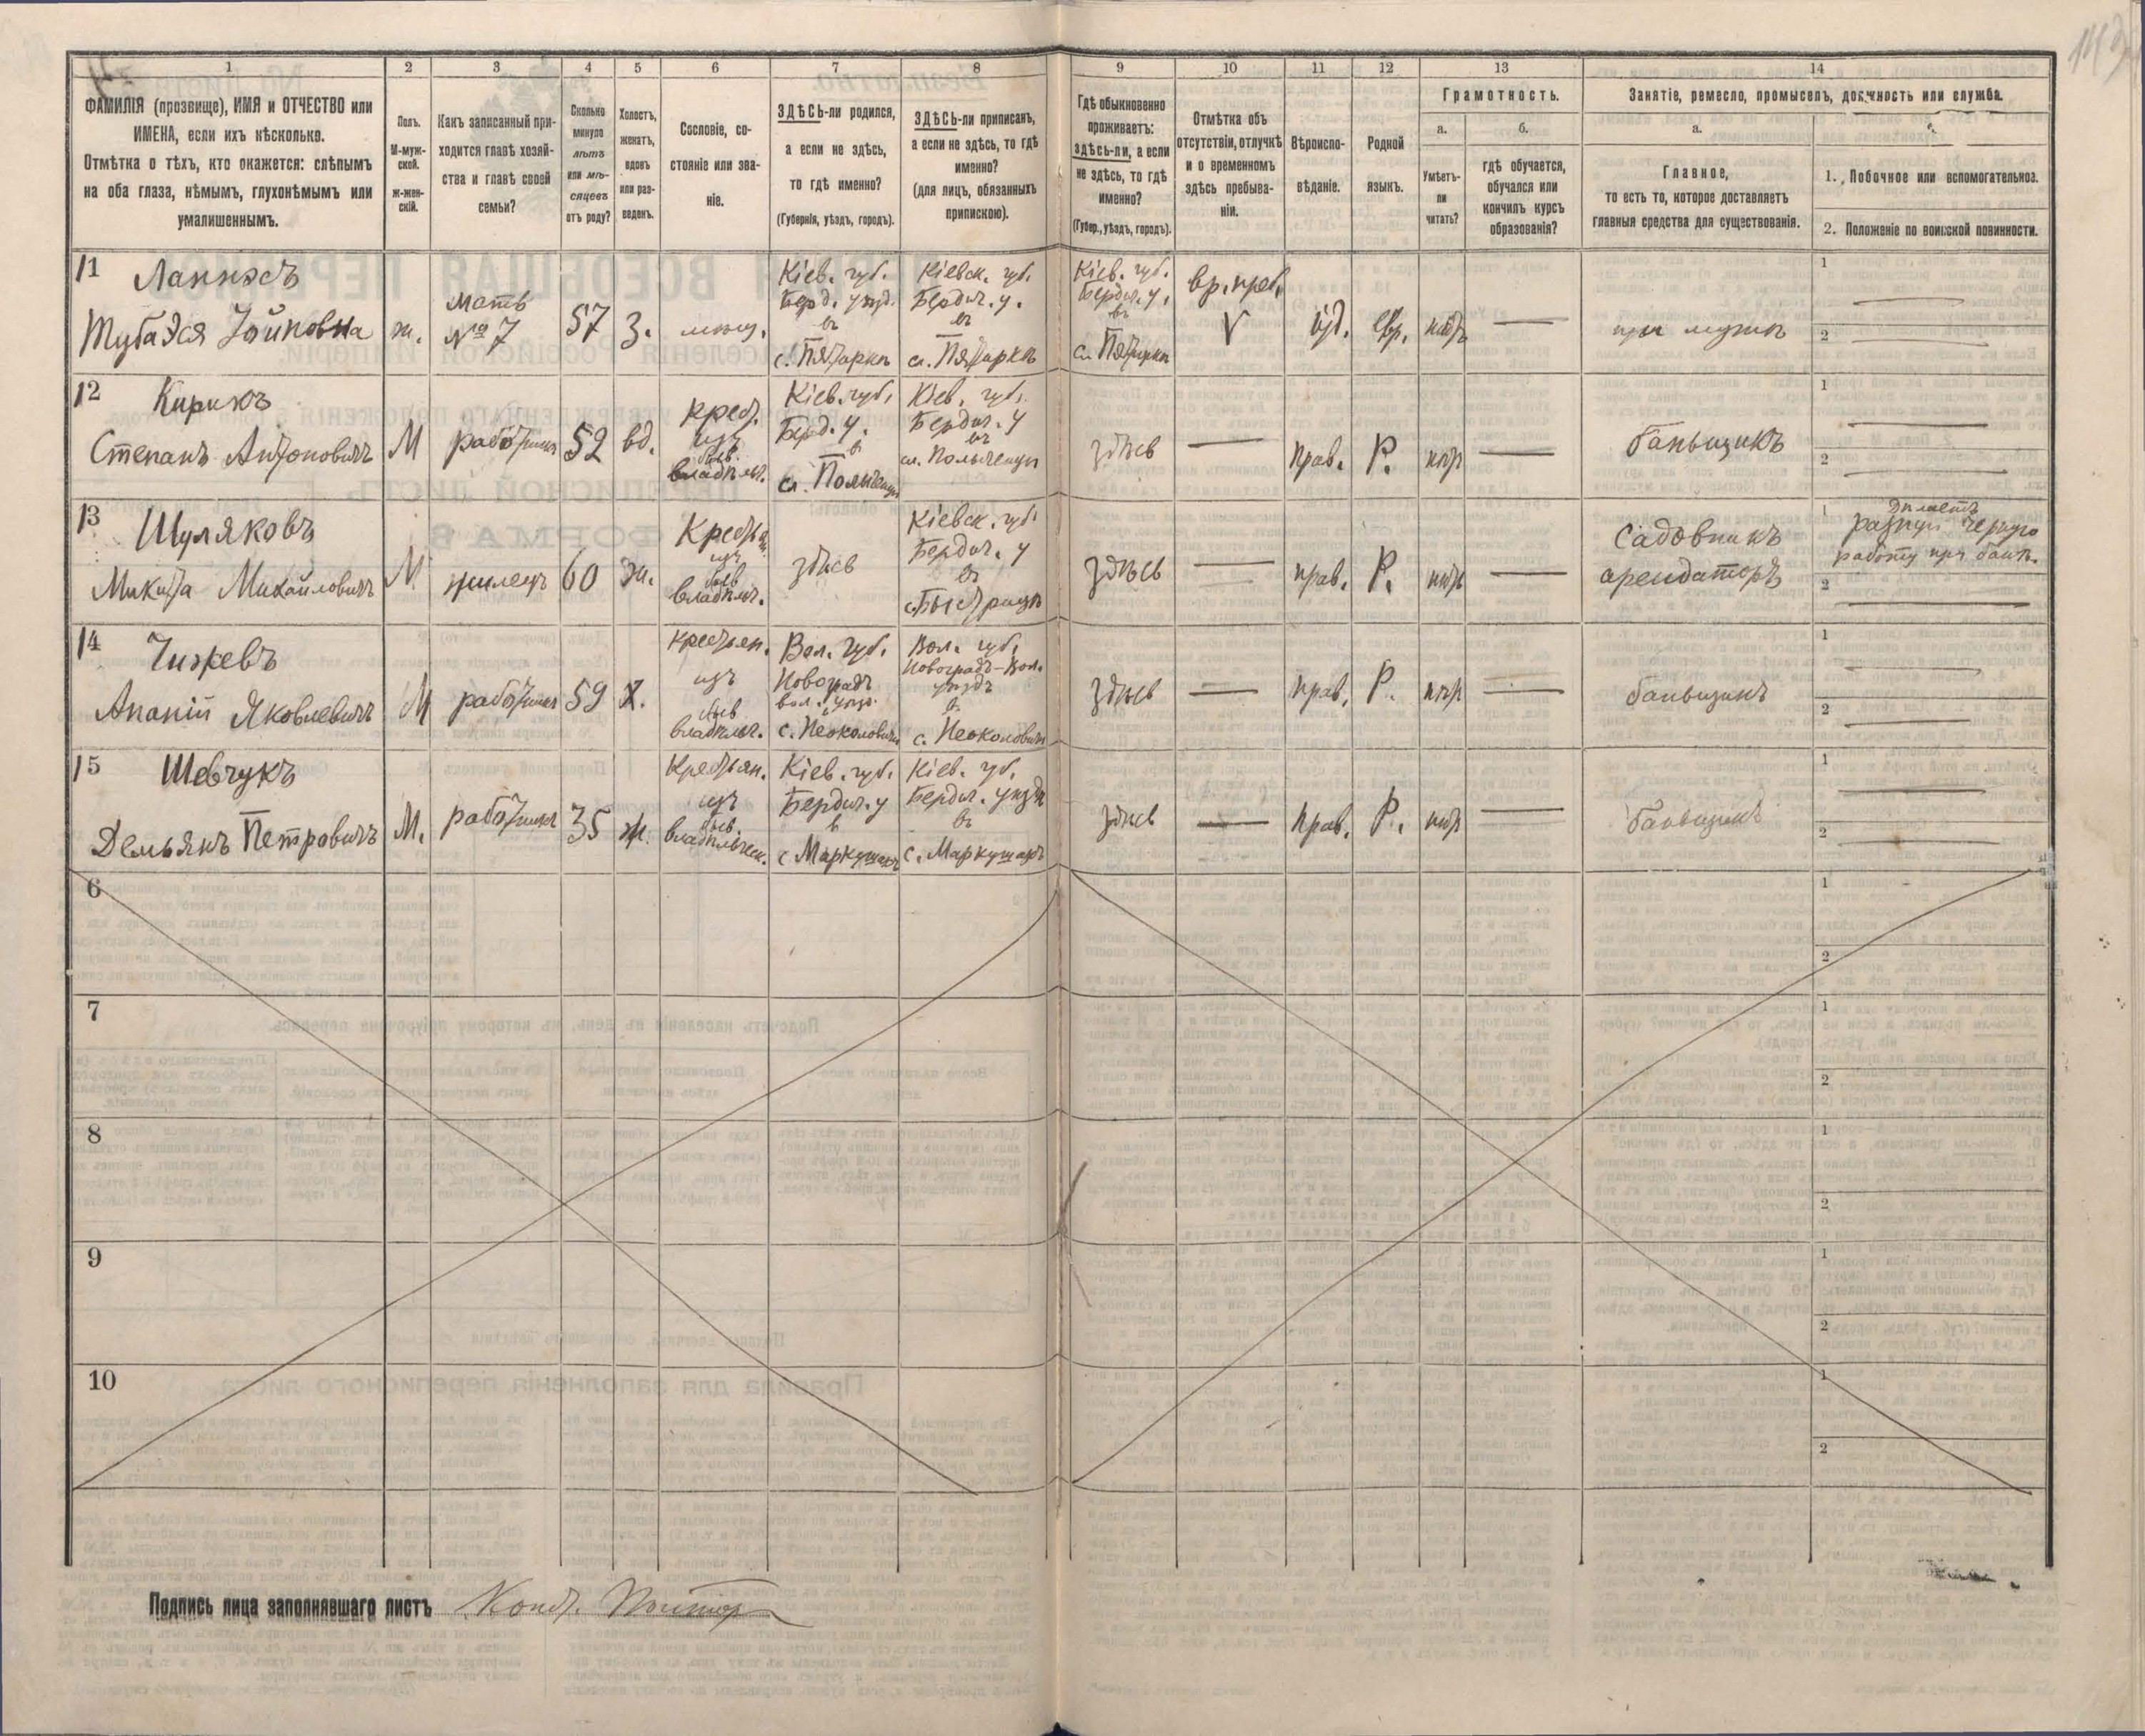 1 2 3 4 5 6 7 8 9 10 11 12 13 14
ФАМИЛІЯ (прозвище), ИМЯ и ОТЧЕСТВО или
ИМЕНА, если ихъ нѣсколько.
Отмѣтка о тѣхъ, кто окажется: слѣпымъ
на оба глаза, нѣмымъ, глухонѣмымъ или
умалишеннымъ.
Полъ.
М-муж-
ской.
ж-жен-
скій.
Какъ записанный при-
ходится главѣ хозяй-
ства и главѣ своей
семьи?
Сколько
минуло
лѣтъ
или мѣ-
сяцевъ
отъ роду?
Холостъ,
женатъ,
вдовъ
или раз-
веденъ.
Сословіе, со-
стояніе или зва-
ніе.
ЗДѢСЬ-ли родился,
а если не здѣсь,
то гдѣ именно?
(Губернія, уѣздъ, городъ).
ЗДѢСЬ-ли приписанъ,
а если не здѣсь, то гдѣ
именно?
(для лицъ, обязанныхъ
припискою).
Гдѣ обыкновенно
проживаетъ:
здѣсь-ли, а если
не здѣсь, то гдѣ
именно?
(Губер., уѣздъ, городъ).
Отмѣтка объ
отсутствіи, отлучкѣ
и о временномъ
здѣсь пребыва-
ніи.
Вѣроиспо-
вѣданіе.
Родной
языкъ.
Грамотность.
а.
Умѣетъ-
ли
читать?
б.
гдѣ обучается,
обучался или
кончилъ курсъ
образованія?
Занятіе, ремесло, промыселъ, должность или служба.
а.
Главное,
то есть то, которое доставляетъ
главныя средства для существованія.
1. Побочное или вспомогательное.
2. Положеніе по воинской повинности.
11
ж.
мать
№ 7
57
З.
Кіев. губ.
Берд. уѣзд.
въ
Кіевск. губ.
Бердич. у.
въ
Кіев. губ.
Бердич. у.
въ
вр. преб.
V
іуд.
евр.
—
1 —
2 —
12
Кирикъ
Степанъ Антоновичъ
М
работникъ
52
вд.
крест.
изъ
быв.
владѣльч.
Кіев. губ.
Берд. у.
в
Кіев. губ.
Бердич. у
въ
здѣсь
—
прав.
Р.
—
баньщикъ
1 —
2 —
13
Шуляковъ
Микита Михайловичъ
М.
жилецъ
60
ж.
изъ
быв
владѣльч.
здѣсь
Кіевск. губ.
Бердич. у
въ
с. Быстрицѣ
здѣсь
—
прав.
Р.
—
Садовникъ
арендаторъ
1 дѣлаетъ
разную черную
работу при банѣ.
2 —
14
Чижевъ
Ананій Яковлевичъ
М
работникъ
59
х.
крестьян.
изъ
быв
владѣльч.
Вол. губ.
Новоградъ
вол. уѣзд.
в
Вол. губ.
Новоградъ-Вол.
уѣздъ
в.
здѣсь
—
прав.
Р.
—
баньщикъ
1 —
2 —
15
Шевчукъ
Демьянъ Петровичъ
М.
работникъ
35
ж.
Крестьян.
изъ
быв.
владѣльческ.
Кіев. губ.
Бердич. у
в
с Маркушахъ
Кіев. губ.
Бердич. уѣздѣ
въ
с. Маркушахъ
здѣсь
—
прав.
Р.
—
баньщикъ
1 —
2 —
6
1
2
7
1
2
8
1
2
9
1
2
10
1
2
Подпись лица заполнявшаго листъ